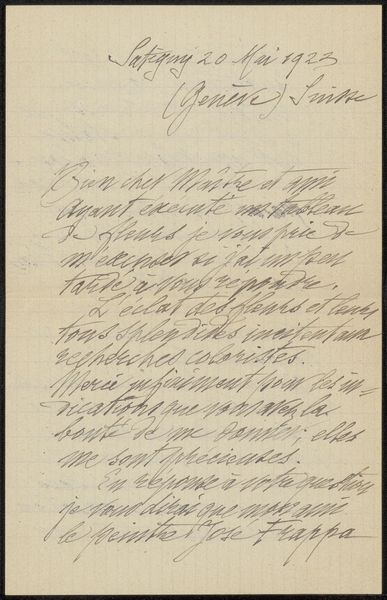 Satigny 20 Mai 1923
(Genève) Suisse
Bien cher Maître et ami
Ayant exécuté un tableau
de fleurs je vous prie de
m'excuser si j'ai un peu
tardé à vous répondre.
L'éclat des fleurs et leurs
tons splendides incitent aux
recherches coloristes.
Merci infiniment pour les in-
dications que vous avez la
bonté de me donner; elles
me sont précieuses.
En réponse à votre question
je vous dirai que mon ami
le peintre José Frappa